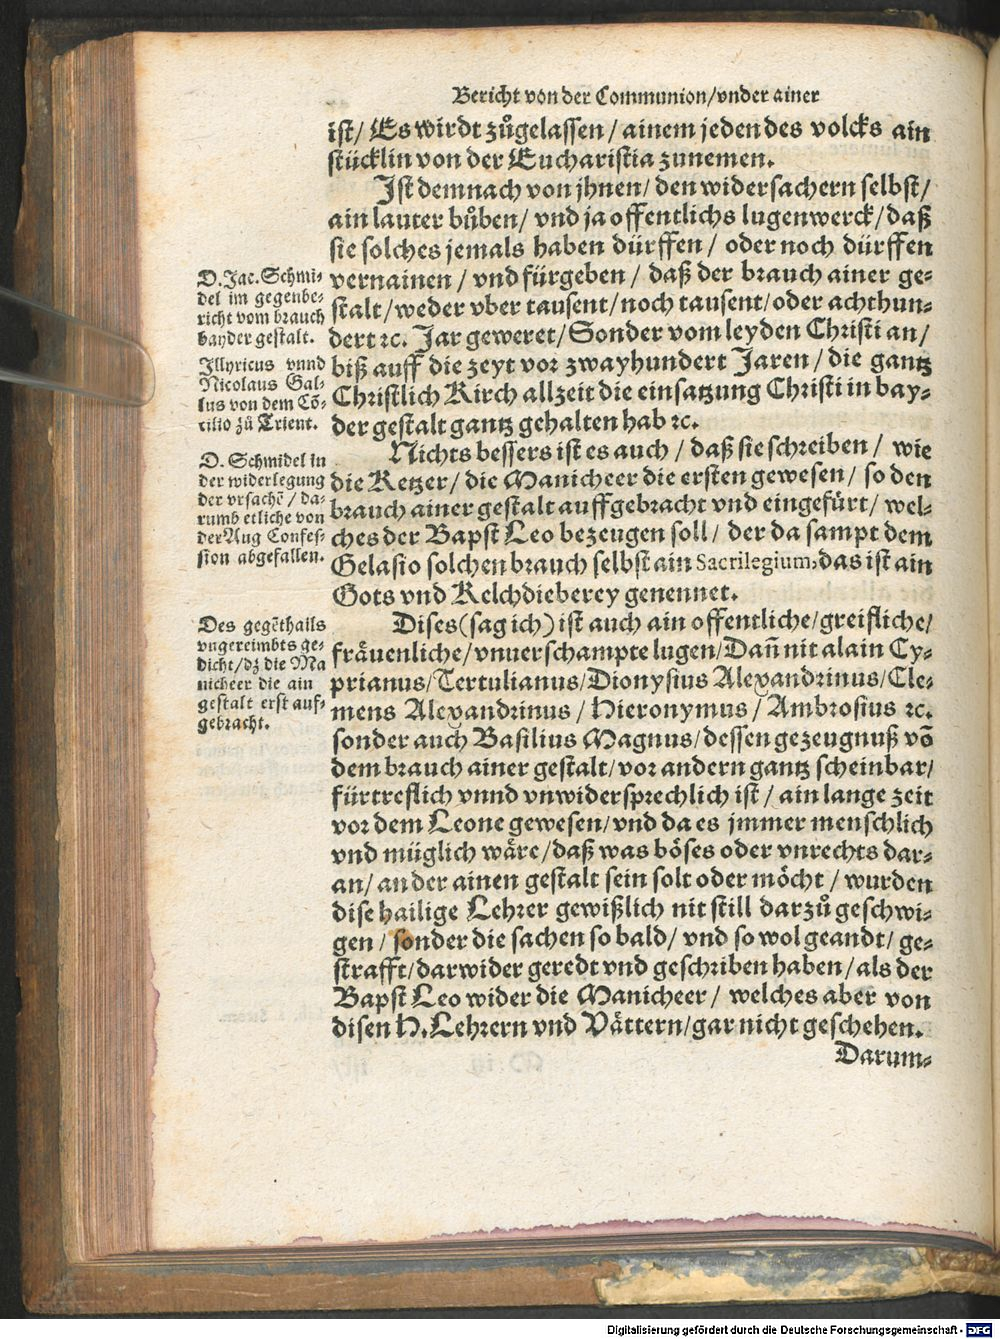 Bericht von der Communion/vnder ainer
ist/ Es wirdt zůgelassen/ainem jeden des volcks ain
stücklin von der Eucharistia zunemen.
Ist demnach von jhnen/ den widersachern selbst/
ain lauter bůben/ vnd ja offentlichs lugenwerck/daß
sie solches jemals haben dürffen/ oder noch dürffen
vernainen/ vnd fürgeben/ daß der brauch ainer ge-
stalt/weder vber tausent/noch tausent/oder achthun-
dert ꝛc. Jar geweret/Sonder vom leyden Christi an/
biß auff die zeyt vor zwayhundert Jaren/ die gantz
Christlich Kirch allzeit die einsatzung Christi in bay-
der gestalt gantz gehalten hab ꝛc.
Nichts bessers ist es auch/ daß sie schreiben/ wie
die Ketzer/ die Manicheer die ersten gewesen/ so den
brauch ainer gestalt auffgebracht vnd eingefürt/ wel-
ches der Bapst Leo bezeugen soll/ der da sampt dem
Gelasio solchen brauch selbst ain Sacrilegium, das ist ain
Gots vnd Kelchdieberey genennet.
Dises (sag ich) ist auch ain offentliche/greifliche/
fräuenliche/vnuerschampte lugen/Dañ nit alain Cy-
prianus/Tertulianus/Dionysius Alexandrinus/Cle-
mens Alexandrinus/ Hieronymus/ Ambrosius ꝛc.
sonder auch Basilius Magnus/dessen gezeugnuß võ
dem brauch ainer gestalt/vor andern gantz scheinbar/
fürtreflich vnnd vnwidersprechlich ist/ ain lange zeit
vor dem Leone gewesen/vnd da es jmmer menschlich
vnd müglich wäre/daß was böses oder vnrechts dar-
an/ an der ainen gestalt sein solt oder möcht/ wurden
dise hailige Lehrer gewißlich nit still darzů geschwi-
gen/ sonder die sachen so bald/ vnd so wol geandt/ ge-
strafft/darwider geredt vnd geschriben haben/als der
Bapst Leo wider die Manicheer/ welches aber von
disen H. Lehrern vnd Vättern/gar nicht geschehen.
Darum-
D. Jac. Schmi-
del im gegenbe-
richt vom brauch
bayder gestalt.
Illyricus vnnd
Nicolaus Gal-
lus von dem Cõ-
cilio zů Trient.
D. Schmidel in
der widerlegung
der vrsachẽ/ da-
rumb etliche von
der Aug Confes-
sion abgefallen.
Des gegẽthails
vngereimbts ge-
dicht/dz die Ma
nicheer die ain
gestalt erst auf-
gebracht.
Digitalisierung gefördert durch die Deutsche Forschungsgemeinschaft - DFG